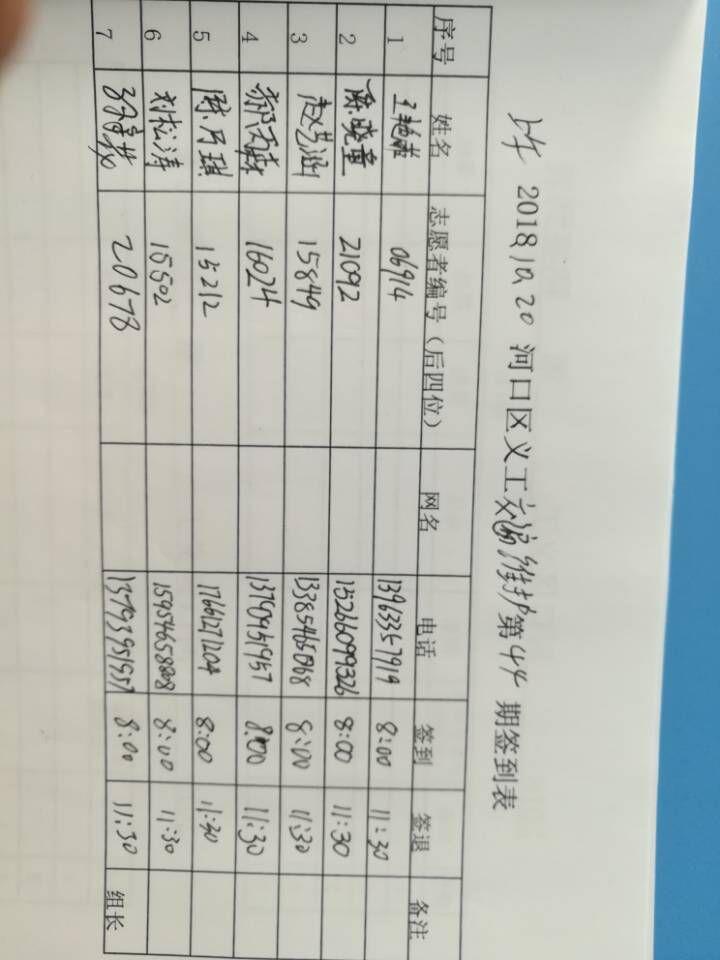 上午 2018.10.20 河口区义工交通维护第44期签到表
序号 姓名 志愿者编号（后四位） 网名 电话 签到 签退 备注
1 王艳菲 06914 13963357919 8:00 11:30
2 陈晓童 21092 15266099326 8:00 11:30
3 赵芸涵 15849 13385465068 8:00 11:30
4 16024 8:00 11:30
5 陈乃琪 15212 17661271204 8:00 11:30
6 刘松涛 15502 15954658808 8:00 11:30
7 20678 13793951957 8:00 11:30 组长